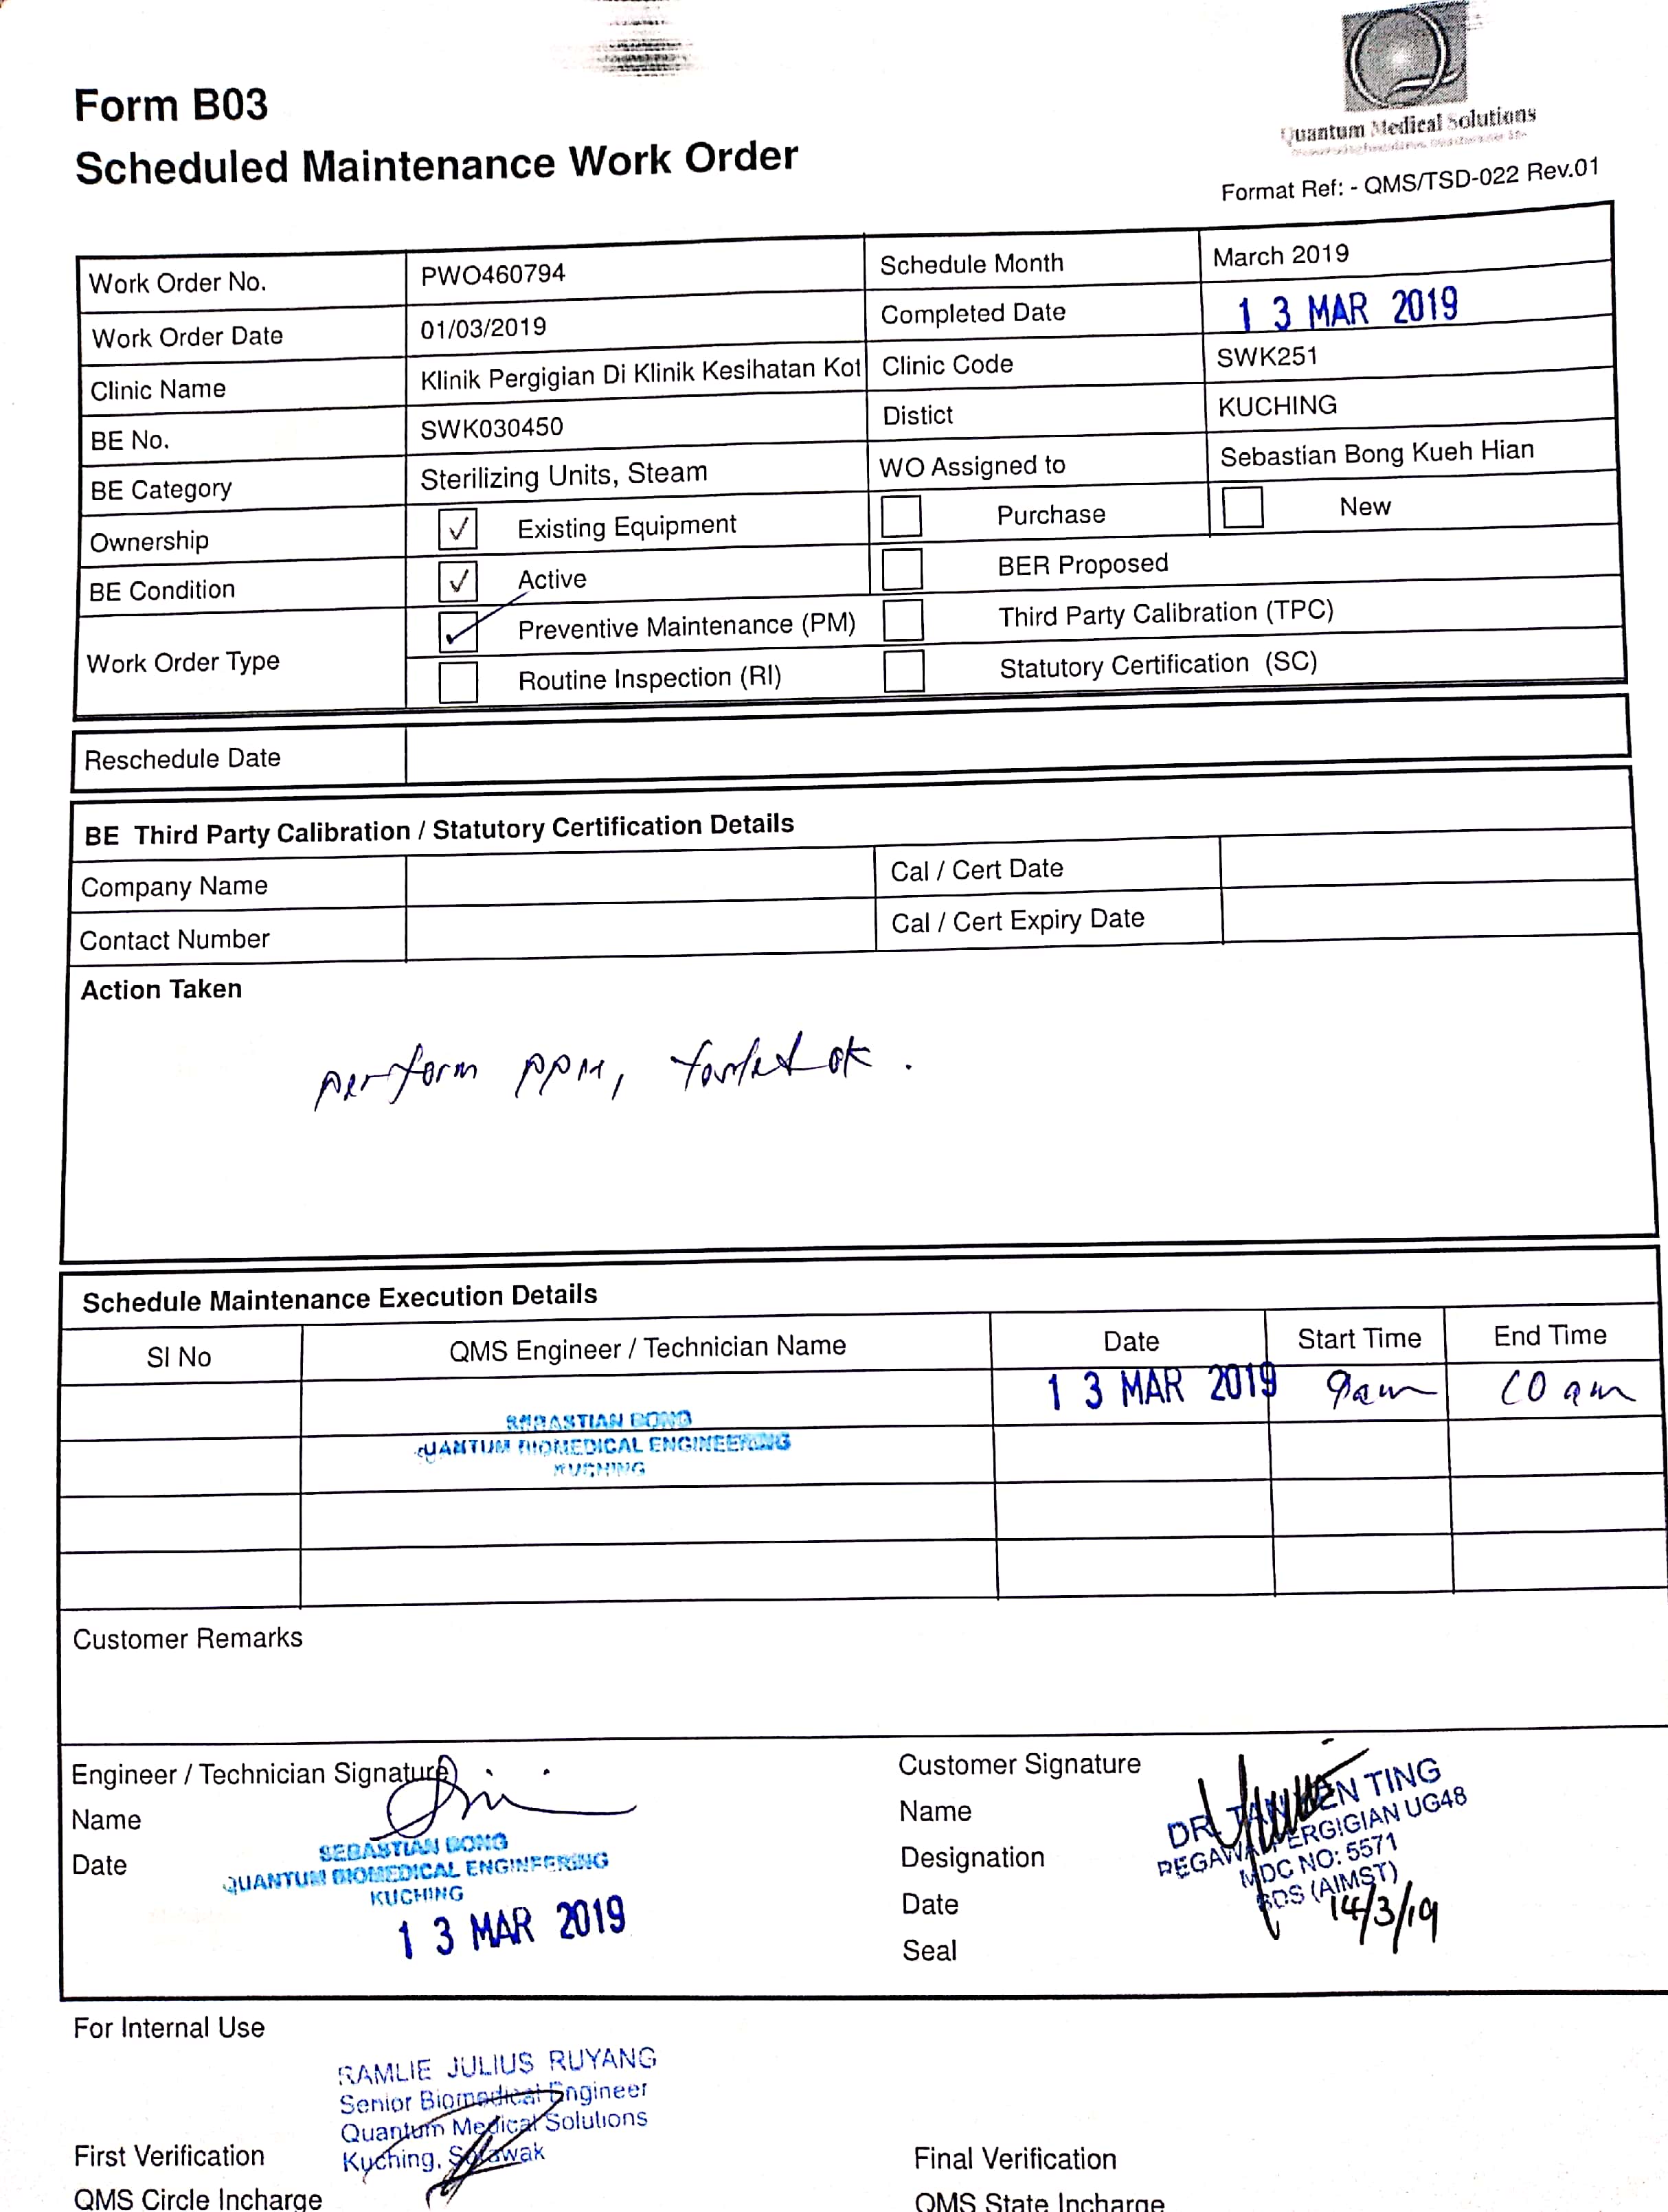 Form B03
Scheduled Maintenance Work Order
Quantum Medical Solutions
Format Ref: - QMS/TSD-022 Rev.01
Work Order No. PWO460794 Schedule Month March 2019
Work Order Date 01/03/2019 Completed Date 13 MAR 2019
Clinic Name Klinik Pergigian Di Klinik Kesihatan Kot Clinic Code SWK251
BE No. SWK030450 Distict KUCHING
BE Category Sterilizing Units, Steam WO Assigned to Sebastian Bong Kueh Hian
Ownership ✓ Existing Equipment Purchase New
BE Condition ✓ Active BER Proposed
Work Order Type ✓ Preventive Maintenance (PM) Third Party Calibration (TPC)
Routine Inspection (RI) Statutory Certification (SC)
Reschedule Date
BE Third Party Calibration / Statutory Certification Details
Company Name Cal / Cert Date
Contact Number Cal / Cert Expiry Date
Action Taken
perform PPM, ok.
Schedule Maintenance Execution Details
SI No QMS Engineer / Technician Name Date Start Time End Time
13 MAR 2019 9am 10 am
SEBASTIAN BONG
QUANTUM BIOMEDICAL ENGINEERING
KUCHING
Customer Remarks
Engineer / Technician Signature
Name
Date
SEBASTIAN BONG
QUANTUM BIOMEDICAL ENGINEERING
KUCHING
13 MAR 2019
Customer Signature
Name
Designation
Date
Seal
DR. TAN TING
PEGAWAI PERGIGIAN UG48
MDC NO: 5571
BDS (AIMST)
14/3/19
For Internal Use
RAMLIE JULIUS RUYANG
Senior Biomedical Engineer
Quantum Medical Solutions
Kuching, Sarawak
First Verification Final Verification
QMS Circle Incharge QMS State Incharge